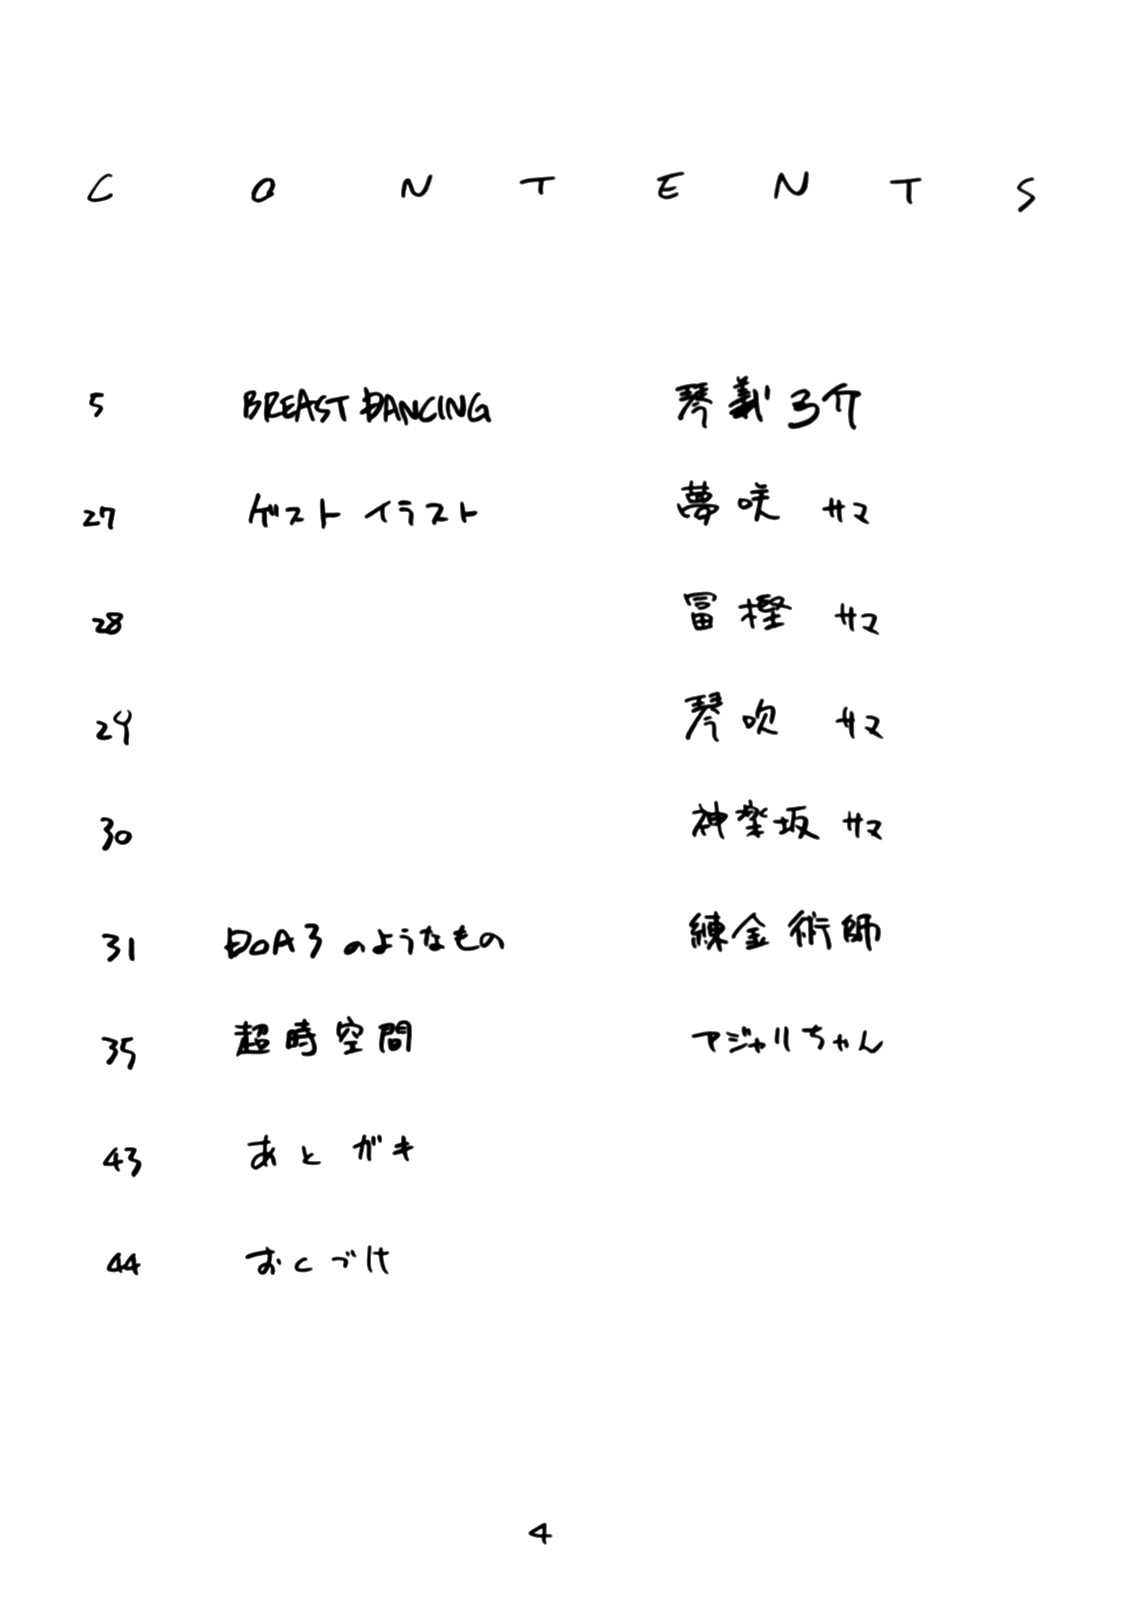 CONTENTS
5 BREAST DANCING 琴義弓介
27 ゲストイラスト 夢咲サマ
28 冨樫サマ
29 琴吹サマ
30 神楽坂サマ
31 DOA3のようなもの 練金術師
35 超時空間 アジャリちゃん
43 あとガキ
44 おくづけ
4